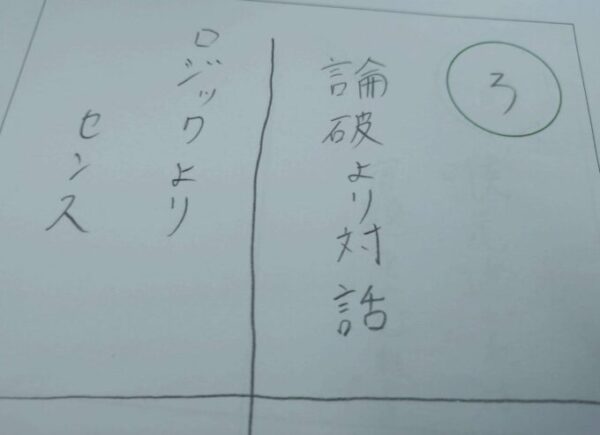 3
論破より対話
ロジックより
センス